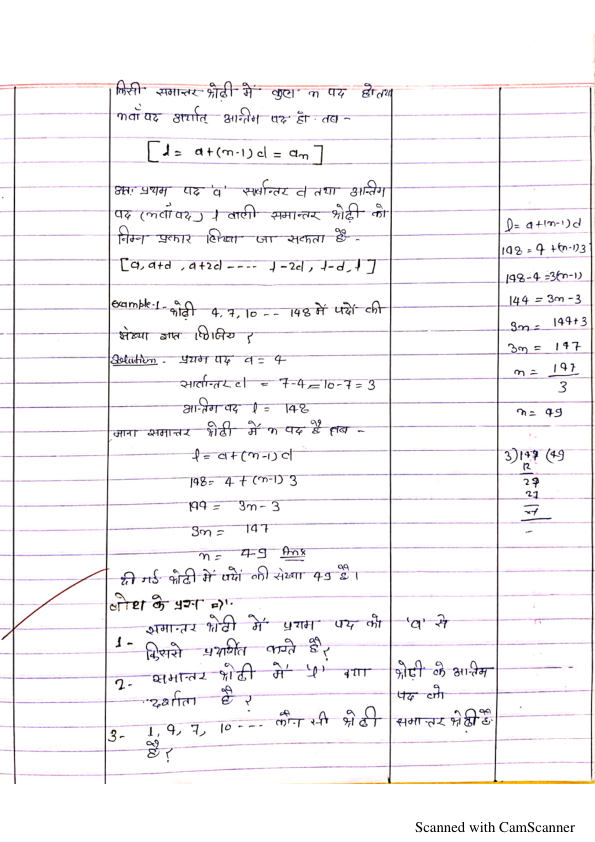 किसी समान्तर श्रेढ़ी में कुल n पद हो तथा
nवाँ पद अर्थात् अन्तिम पद हो तब -
[ l = a+(n-1)d = an ]
अतः प्रथम पद 'a' सर्वान्तर d तथा अन्तिम
पद (nवाँ पद) l वाली समान्तर श्रेढ़ी को
निम्न प्रकार लिखा जा सकता है -
[a, a+d, a+2d ---- l-2d, l-d, l]
example-1- श्रेढ़ी 4, 7, 10 -- 148 में पदों की
संख्या ज्ञात कीजिये ?
Solution. प्रथम पद a = 4
सार्वान्तर d = 7-4 = 10-7 = 3
अन्तिम पद l = 148
माना समान्तर श्रेढ़ी में n पद है तब -
l = a+(n-1)d
148 = 4 + (n-1) 3
144 = 3n - 3
3n = 147
n = 49 Ans
दी गई श्रेढ़ी में पदों की संख्या 49 है।
बोध के प्रश्न
1- समान्तर श्रेढ़ी में प्रथम पद को
किससे प्रदर्शित करते है ?
'a' से
2- समान्तर श्रेढ़ी में 'l' क्या
दर्शाता है ?
श्रेढ़ी के अन्तिम
पद को
3- 1, 4, 7, 10 --- कौन सी श्रेढ़ी
है ?
समान्तर श्रेढ़ी है
l = a+(n-1)d
148 = 4 +(n-1)3
148-4=3(n-1)
144 = 3n-3
3n = 144+3
3n = 147
n = 147
3
n = 49
3)147(49
12
27
27
Scanned with CamScanner